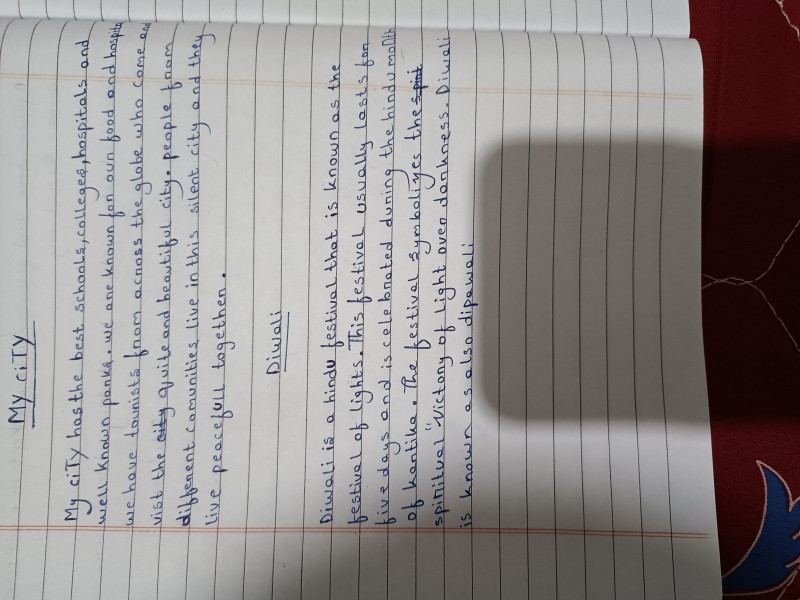 My ciTY
My ciTY has the best schools, colleges, hospitals and
well known parks. we are known for our food and hospita
we have tourists from across the globe who come and
vist the quite and beautiful city. people from
different comunities live in this silent city and they
live peacefull together.
Diwali
Diwali is a hindu festival that is known as the
festival of lights. This festival usually lasts for
five days and is celebrated during the hindu month
of kartika. The festival symboliyes the
spiritual "Victory of Light over darkness. Diwali
is known as also dipawali